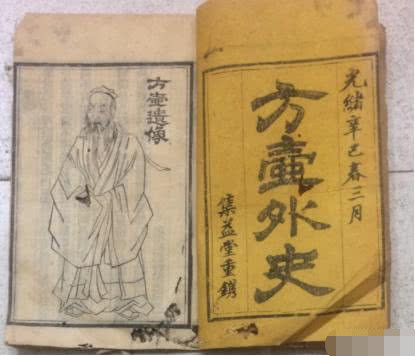 光緒辛巳春三月
方壷外史
集益堂重鐫
方壷遺像